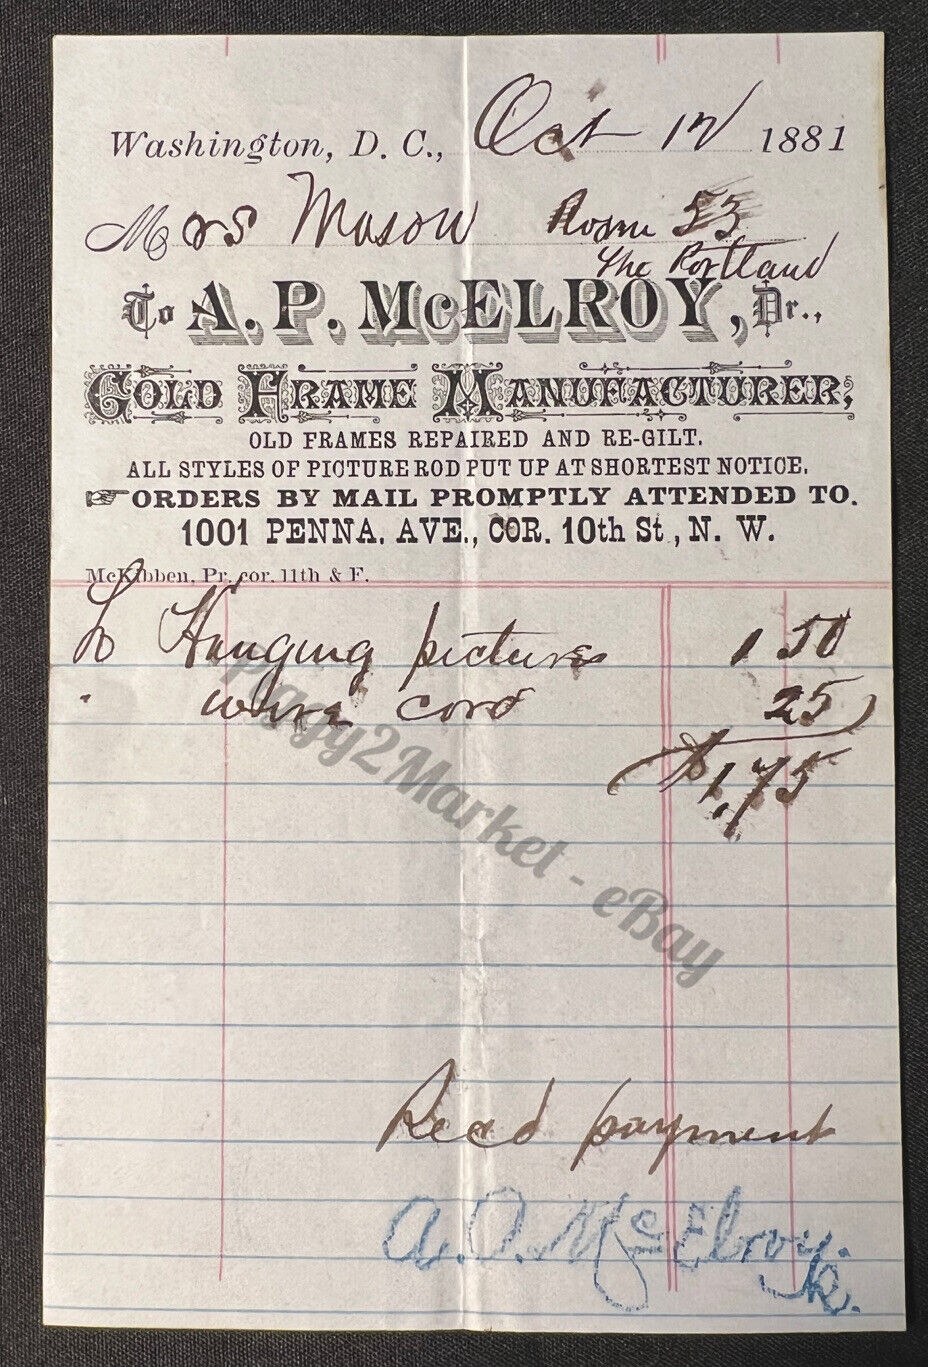 Washington, D. C., Oct 12 1881
Mrs Mason Room 53
The Portland
To A. P. McELROY, Dr.,
GOLD FRAME MANUFACTURER,
OLD FRAMES REPAIRED AND RE-GILT.
ALL STYLES OF PICTURE ROD PUT UP AT SHORTEST NOTICE.
☞ORDERS BY MAIL PROMPTLY ATTENDED TO.
1001 PENNA. AVE., COR. 10th St., N. W.
McKibben, Pr. cor. 11th & F.
To Hanging pictures 1 50
" wire cord 25
$1,75
Piggy2Market - eBay
Recd payment
A. P. McElroy.